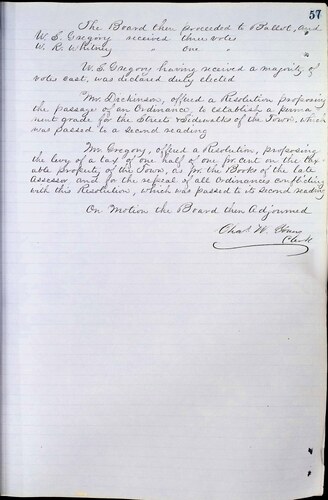 57
The Board then proceeded to Ballot, and
W. E. Gregory received three votes
W. R. Whitney " one "
W. E. Gregory having received a majority of
votes cast, was declared duly elected
Mr. Dickinson, offered a Resolution proposing
the passage of an Ordinance, to establish a perma
nent grade for the Streets & Sidewalks of the Town, which
was passed to a second reading
Mr. Gregory, offered a Resolution, proposing
the levy of a tax of one half of one pr. cent on the tax-
able property of the Town, as pr. the Books of the late
Assessor, and for the repeal of all Ordinances conflicting
with this Resolution, which was passed to its second reading
On Motion the Board then Adjourned
Chas. H.
Clerk